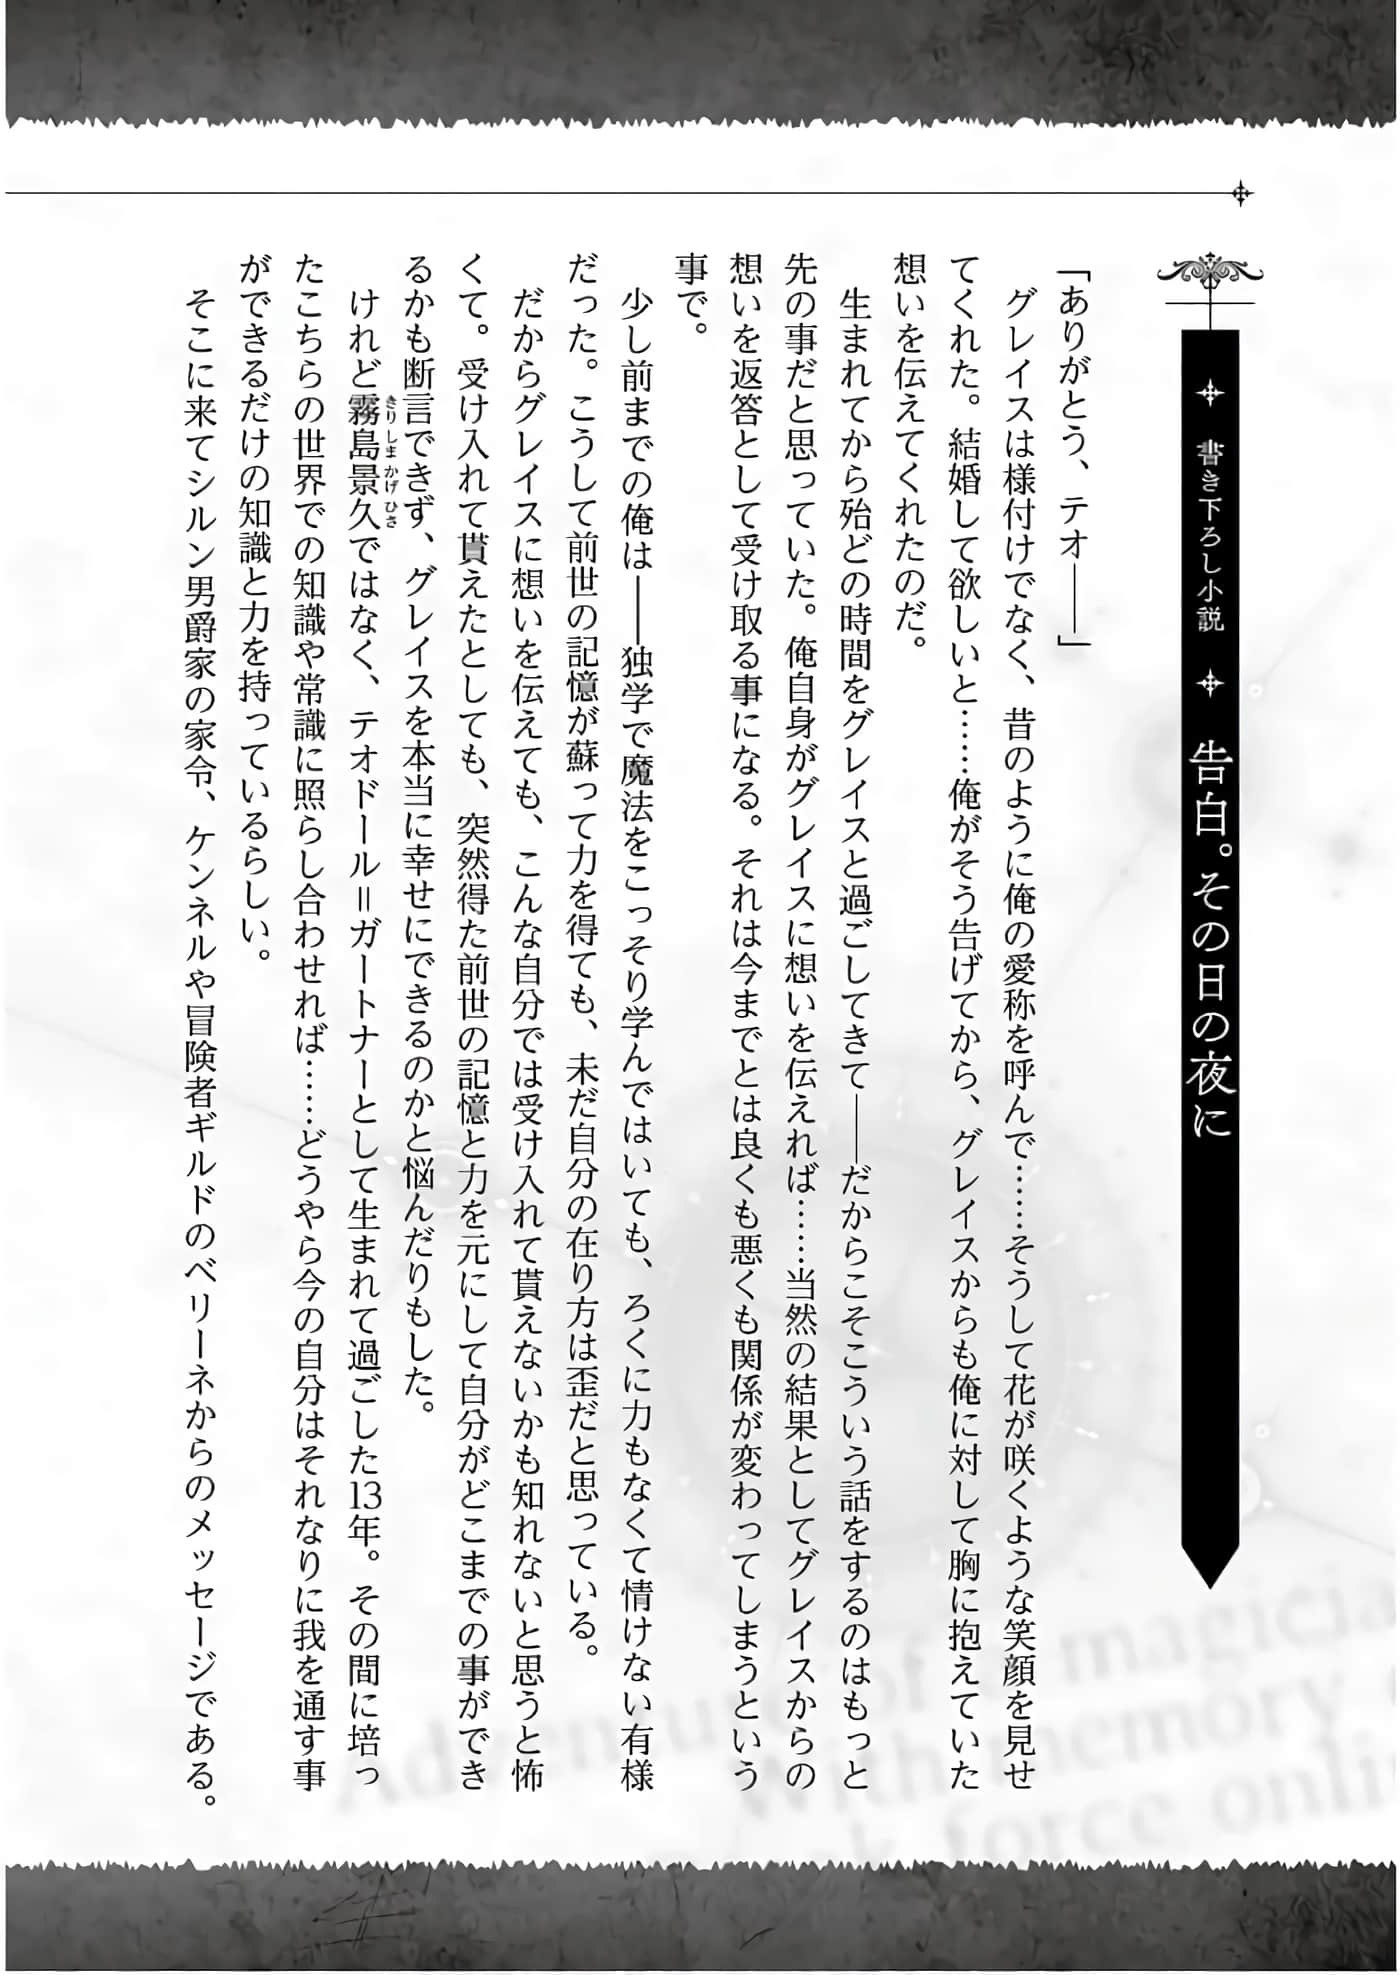 書き下ろし小説 告白。その日の夜に
「ありがとう、テオ――」
　グレイスは様付けでなく、昔のように俺の愛称を呼んで……そうして花が咲くような笑顔を見せ
てくれた。結婚して欲しいと……俺がそう告げてから、グレイスからも俺に対して胸に抱えていた
想いを伝えてくれたのだ。
　生まれてから殆どの時間をグレイスと過ごしてきて――だからこそこういう話をするのはもっと
先の事だと思っていた。俺自身がグレイスに想いを伝えれば……当然の結果としてグレイスからの
想いを返答として受け取る事になる。それは今までとは良くも悪くも関係が変わってしまうという
事で。
　少し前までの俺は――独学で魔法をこっそり学んではいても、ろくに力もなくて情けない有様
だった。こうして前世の記憶が蘇って力を得ても、未だ自分の在り方は歪だと思っている。
　だからグレイスに想いを伝えても、こんな自分では受け入れて貰えないかも知れないと思うと怖
くて。受け入れて貰えたとしても、突然得た前世の記憶と力を元にして自分がどこまでの事ができ
るかも断言できず、グレイスを本当に幸せにできるのかと悩んだりもした。
　けれど霧島景久ではなく、テオドール＝ガートナーとして生まれて過ごした13年。その間に培っ
きりしまかげひさ
たこちらの世界での知識や常識に照らし合わせれば……どうやら今の自分はそれなりに我を通す事
ができるだけの知識と力を持っているらしい。
　そこに来てシルン男爵家の家令、ケンネルや冒険者ギルドのベリーネからのメッセージである。
Adventure of a magicia
With memory
k force onli